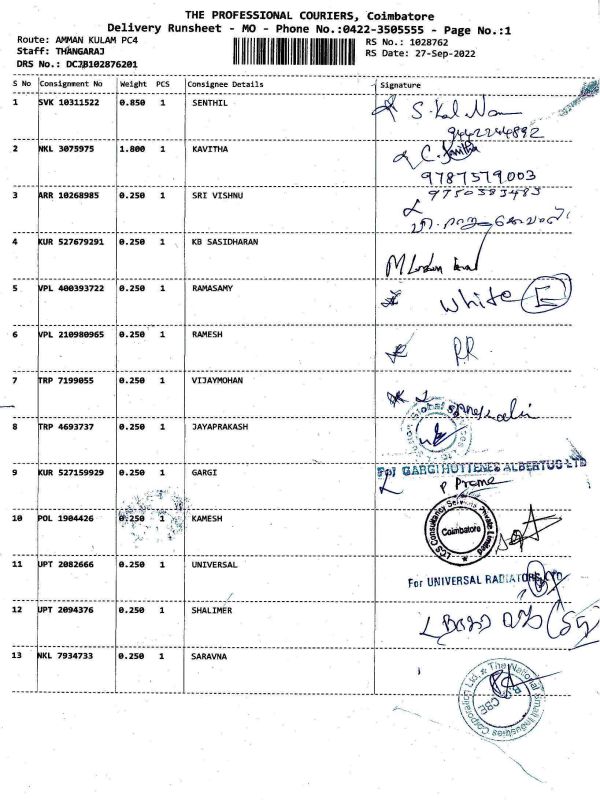 THE PROFESSIONAL COURIERS, Coimbatore
Delivery Runsheet - MO - Phone No.:0422-3505555 - Page No.:1
Route: AMMAN KULAM PC4
RS No.: 1028762
Staff: THANGARAJ
RS Date: 27-Sep-2022
DRS No.: DCJB102876201
S No Consignment No Weight PCS Consignee Details Signature
1 SVK 10311522 0.850 1 SENTHIL
9442244892
2 NKL 3075975 1.800 1 KAVITHA C. Kavitha
9787579003
3 ARR 10268985 0.250 1 SRI VISHNU 9750383483
4 KUR 527679291 0.250 1 KB SASIDHARAN
5 VPL 400393722 0.250 1 RAMASAMY White E
6 VPL 210980965 0.250 1 RAMESH RR
7 TRP 7199055 0.250 1 VIJAYMOHAN
8 TRP 4693737 0.250 1 JAYAPRAKASH Global
9 KUR 527159929 0.250 1 GARGI For GARGI HUTTENES ALBERTUS LTD
P Prema
10 POL 1904426 0.250 1 KAMESH LCS Consultancy Services Private Limited Coimbatore
11 UPT 2082666 0.250 1 UNIVERSAL For UNIVERSAL RADIATORS LTD
12 UPT 2094376 0.250 1 SHALIMER
13 NKL 7934733 0.250 1 SARAVNA The National Small Industries Corporation Ltd. CBE